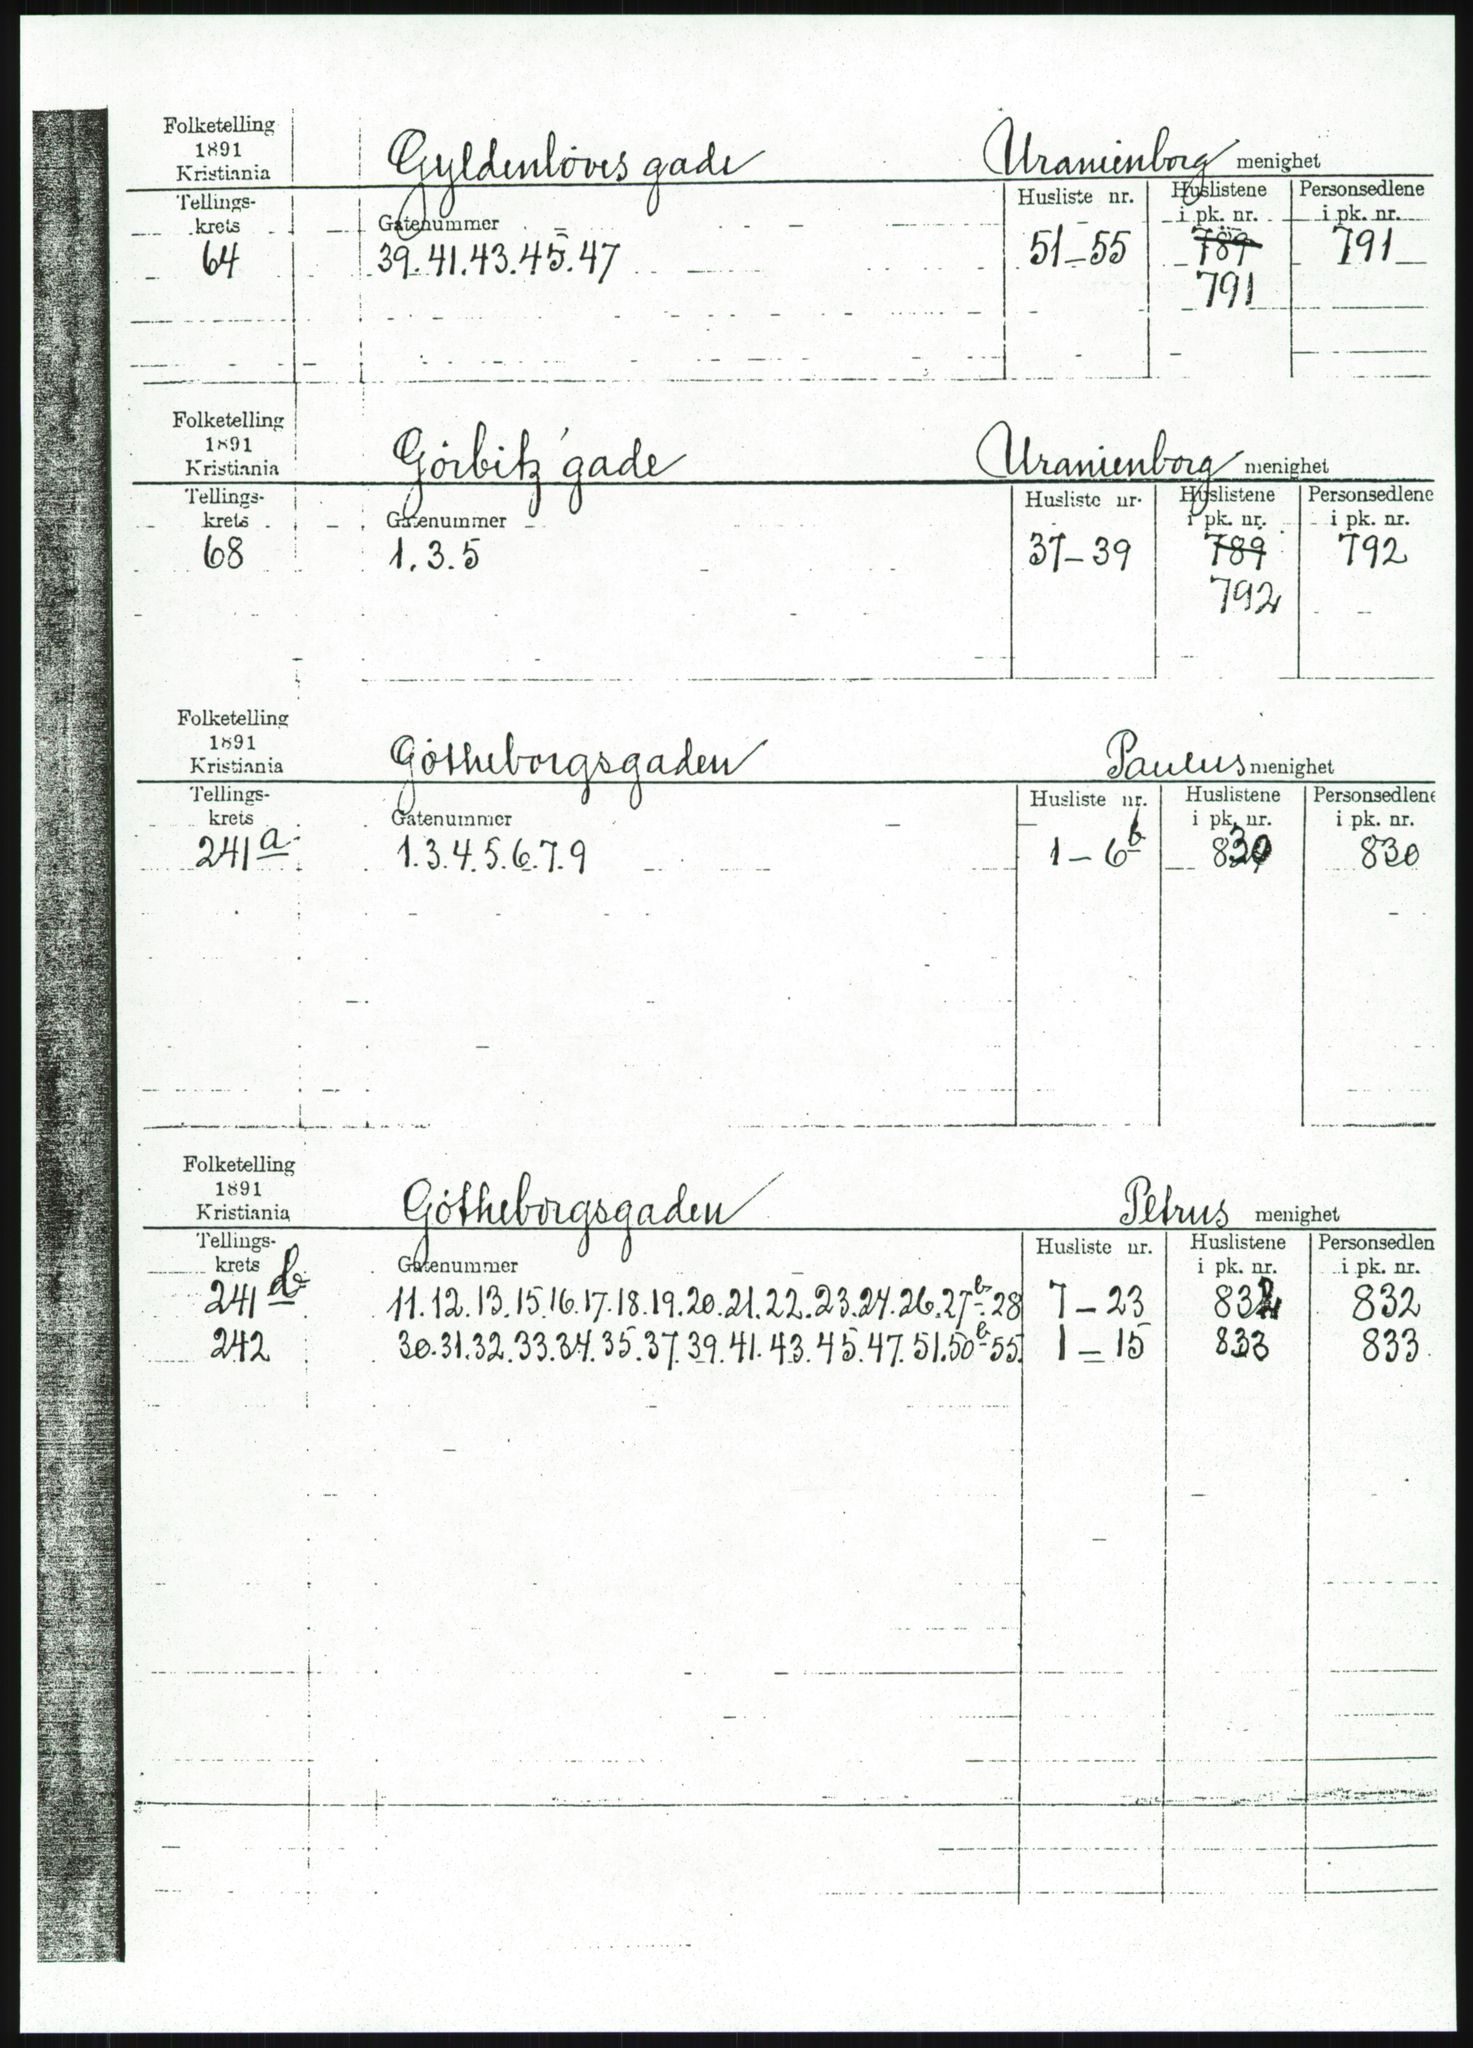 Folketelling
1891
Kristiania
Gyldenløves gade
Uranienborg menighet
Tellings-
krets
Gatenummer
Husliste nr.
Huslistene
i pk. nr.
Personsedlene
i pk. nr.
64
39. 41. 43. 45. 47
51–55
789
791
791
Folketelling
1891
Kristiania
Görbitz' gade
Uranienborg menighet
Tellings-
krets
Gatenummer
Husliste nr.
Huslistene
i pk. nr.
Personsedlene
i pk. nr.
68
1. 3. 5
37–39
789
792
792
Folketelling
1891
Kristiania
Götheborgsgaden
Paulus menighet
Tellings-
krets
Gatenummer
Husliste nr.
Huslistene
i pk. nr.
Personsedlene
i pk. nr.
241 a
1. 3. 4. 5. 6. 7. 9
1–6 b
830
830
Folketelling
1891
Kristiania
Götheborgsgaden
Petrus menighet
Tellings-
krets
Gatenummer
Husliste nr.
Huslistene
i pk. nr.
Personsedlen
i pk. nr.
241 b
11. 12. 13. 15. 16. 17. 18. 19. 20. 21. 22. 23. 24. 26. 27 b. 28
7–23
832
832
242
30. 31. 32. 33. 34. 35. 37. 39. 41. 43. 45. 47. 51. 50 b 55.
1–15
833
833